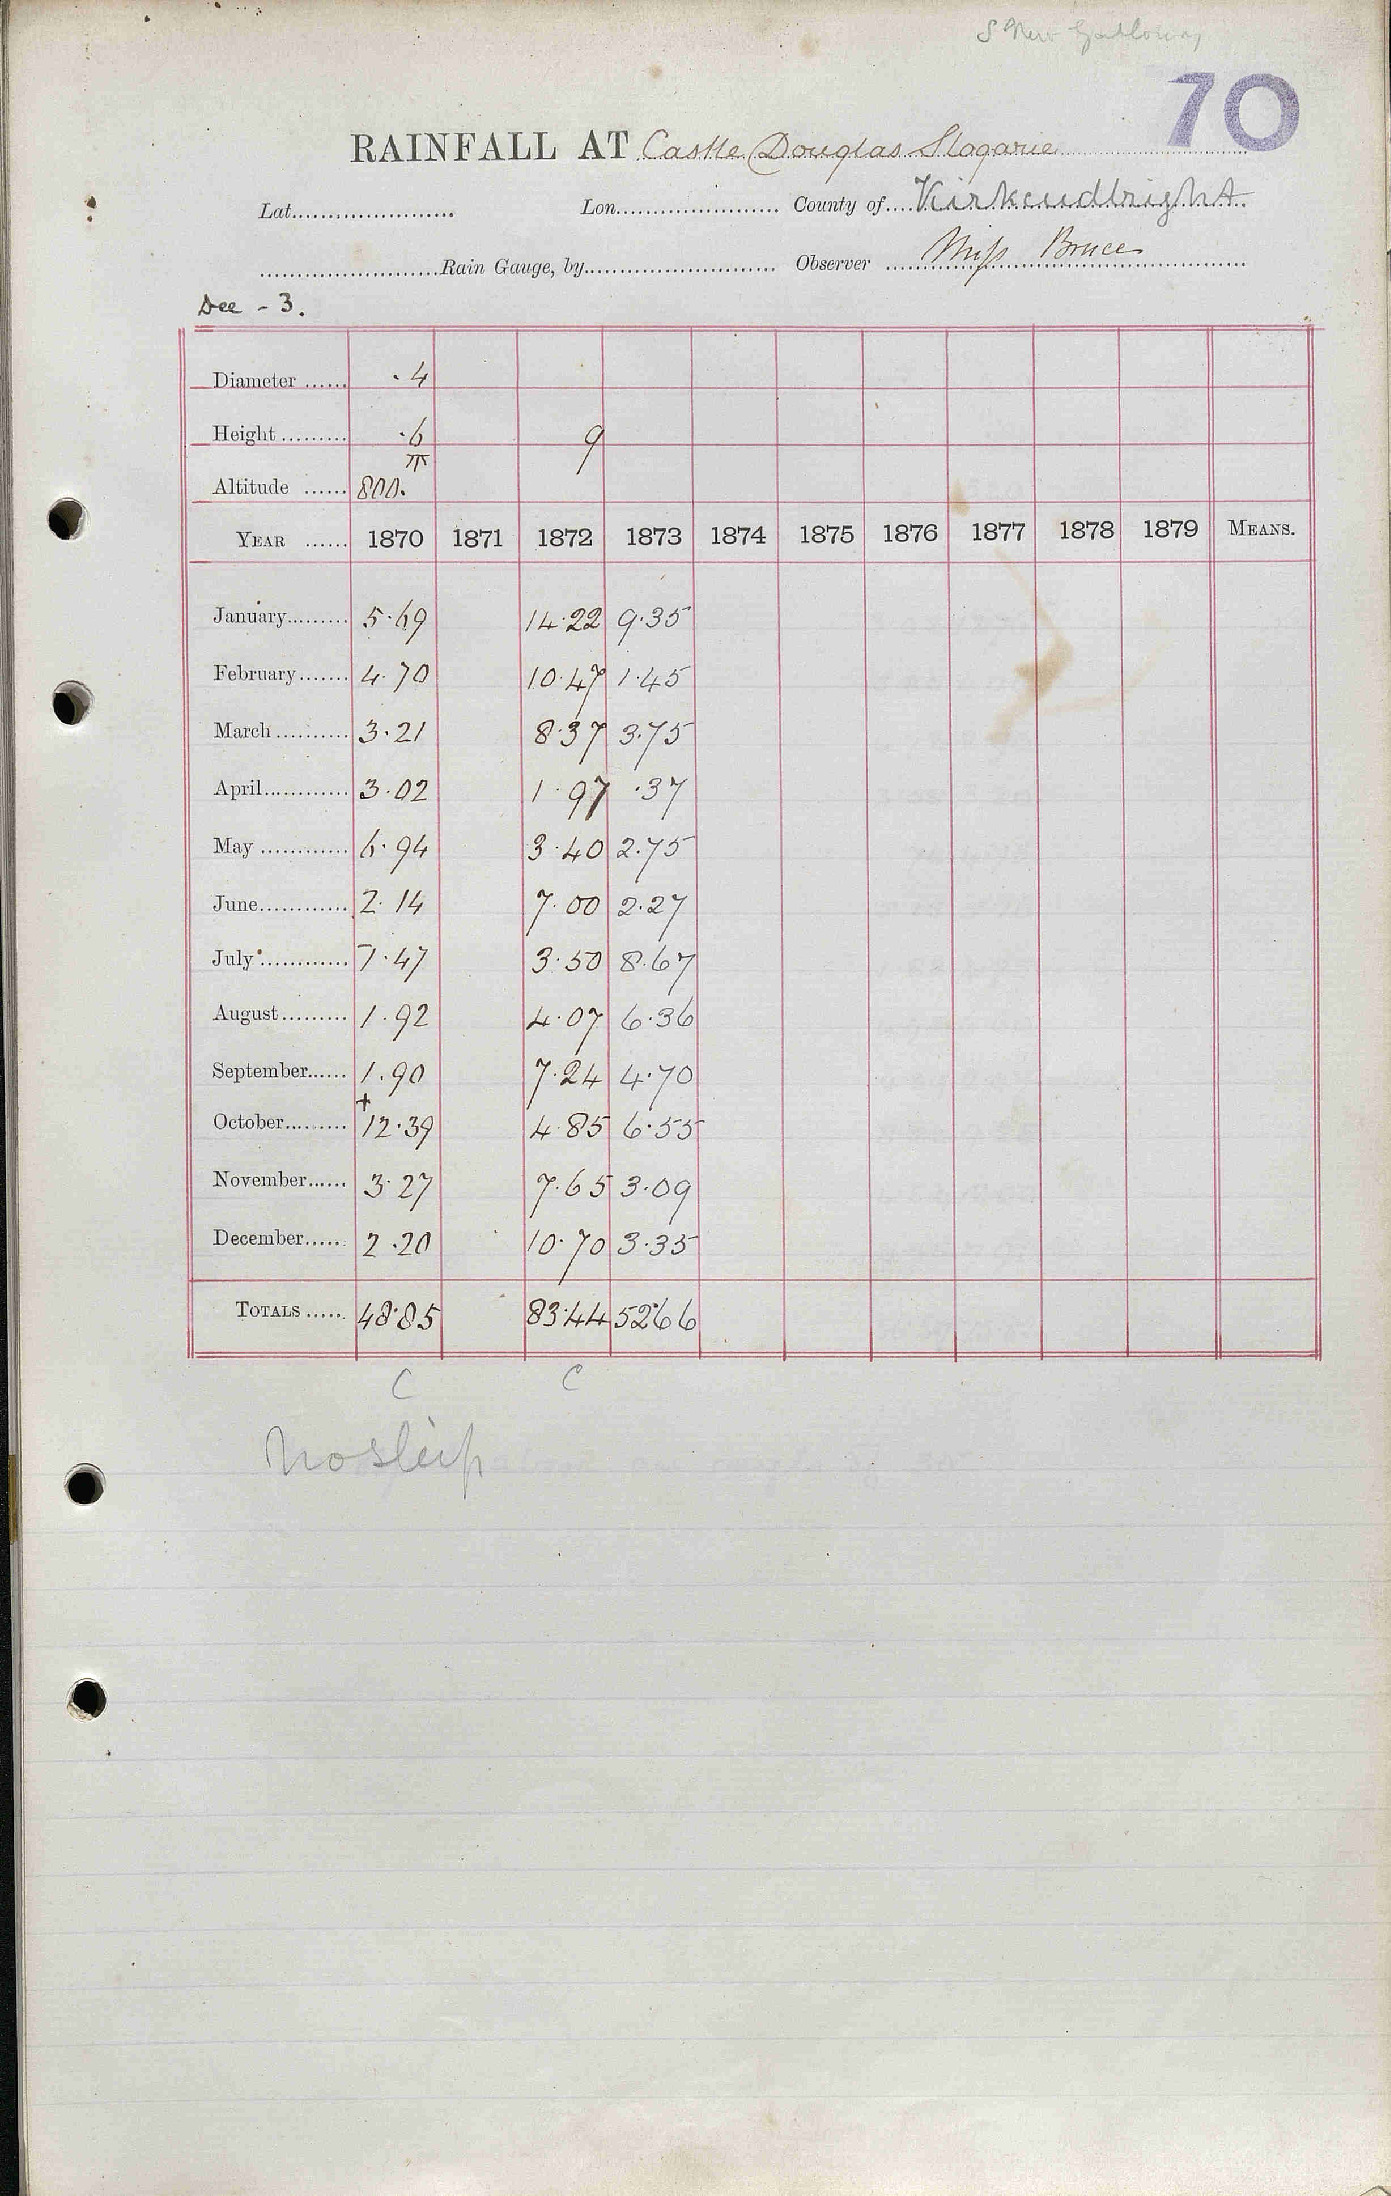 S New Galloway
70
RAINFALL AT Castle Douglas Slogarie
Lat. Lon. County of Kirkcudbright
Rain Gauge, by Observer Miss Bruce
Dee - 3.
Diameter ...... .4
Height ......... .6 9
Altitude ...... 800.
YEAR ...... 1870 1871 1872 1873 1874 1875 1876 1877 1878 1879 MEANS.
January......... 5.69 14.22 9.35
February....... 4.70 10.47 1.45
March .......... 3.21 8.37 3.75
April............ 3.02 1.97 .37
May ............ 6.94 3.40 2.75
June............ 2.14 7.00 2.27
July ............ 7.47 3.50 8.67
August......... 1.92 4.07 6.36
September...... 1.90 7.24 4.70
October......... +12.39 4.85 6.55
November...... 3.27 7.65 3.09
December...... 2.20 10.70 3.35
TOTALS ...... 48.85 83.44 52.66
C C
No slip